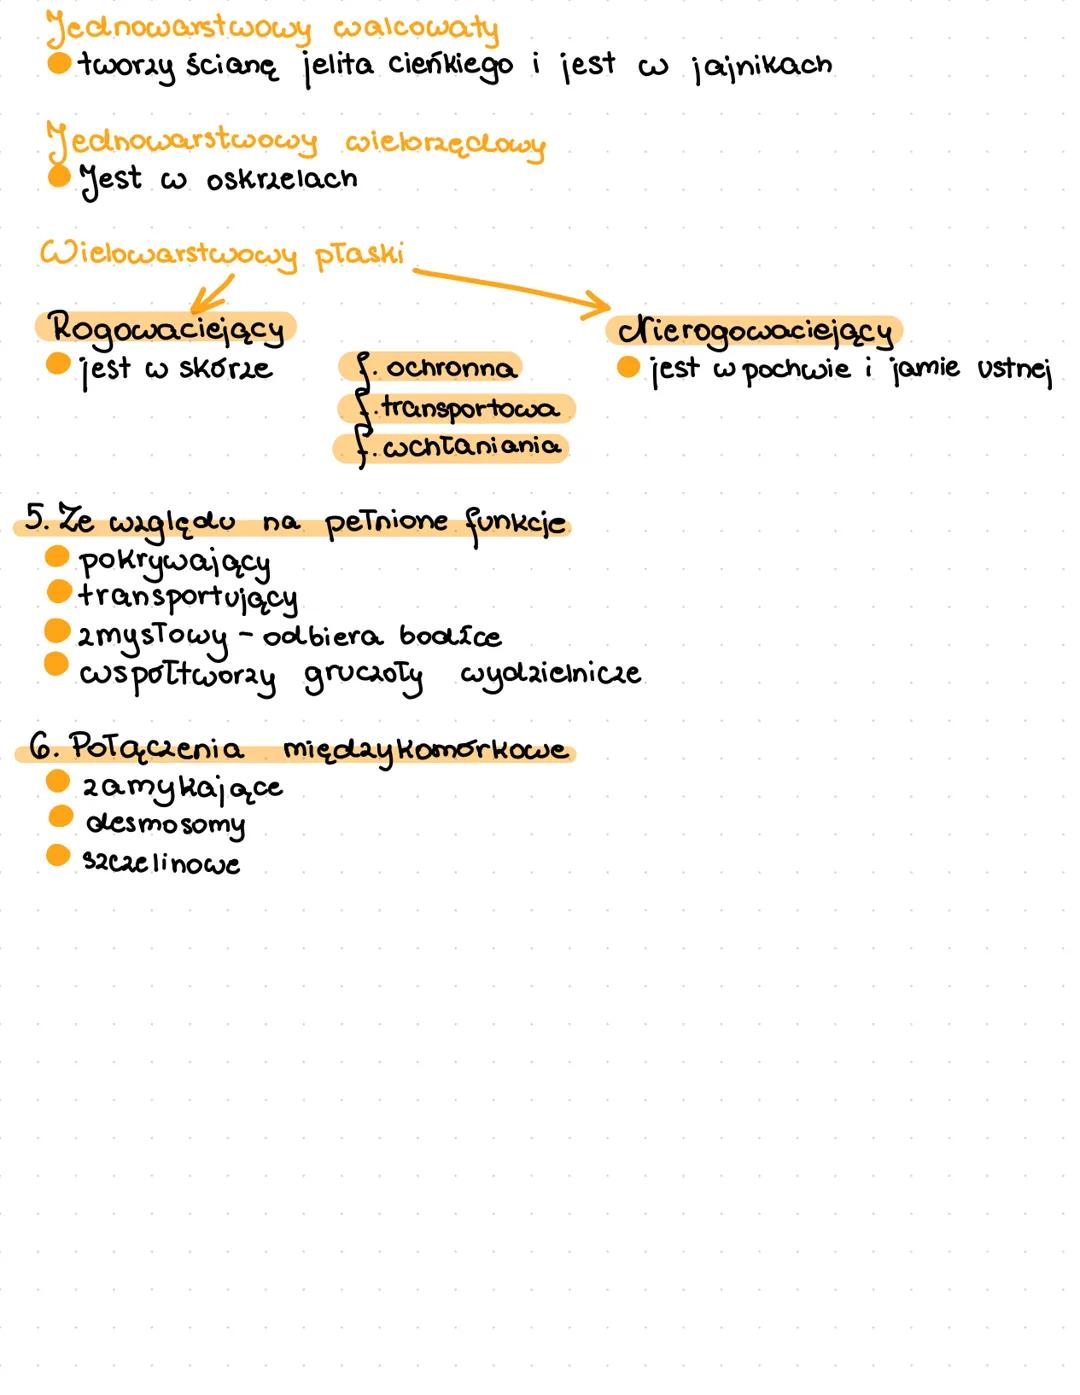 Jednowarstwowy walcowaty
tworzy ścianę jelita cieńkiego i jest w jajnikach
Jednowarstwowy wielorzędowy
Jest w oskrzelach
Wielowarstwowy płaski
Rogowaciejący
jest w skórze
f. ochronna
f. transportowa
f. wchłaniania
Nierogowaciejący
jest w pochwie i jamie ustnej
5. Ze względu na pełnione funkcje
pokrywający
transportujący
zmysłowy - odbiera bodźce
współtworzy gruczoły wydzielnicze
6. Połączenia międzykomórkowe
zamykające
desmosomy
szczelinowe